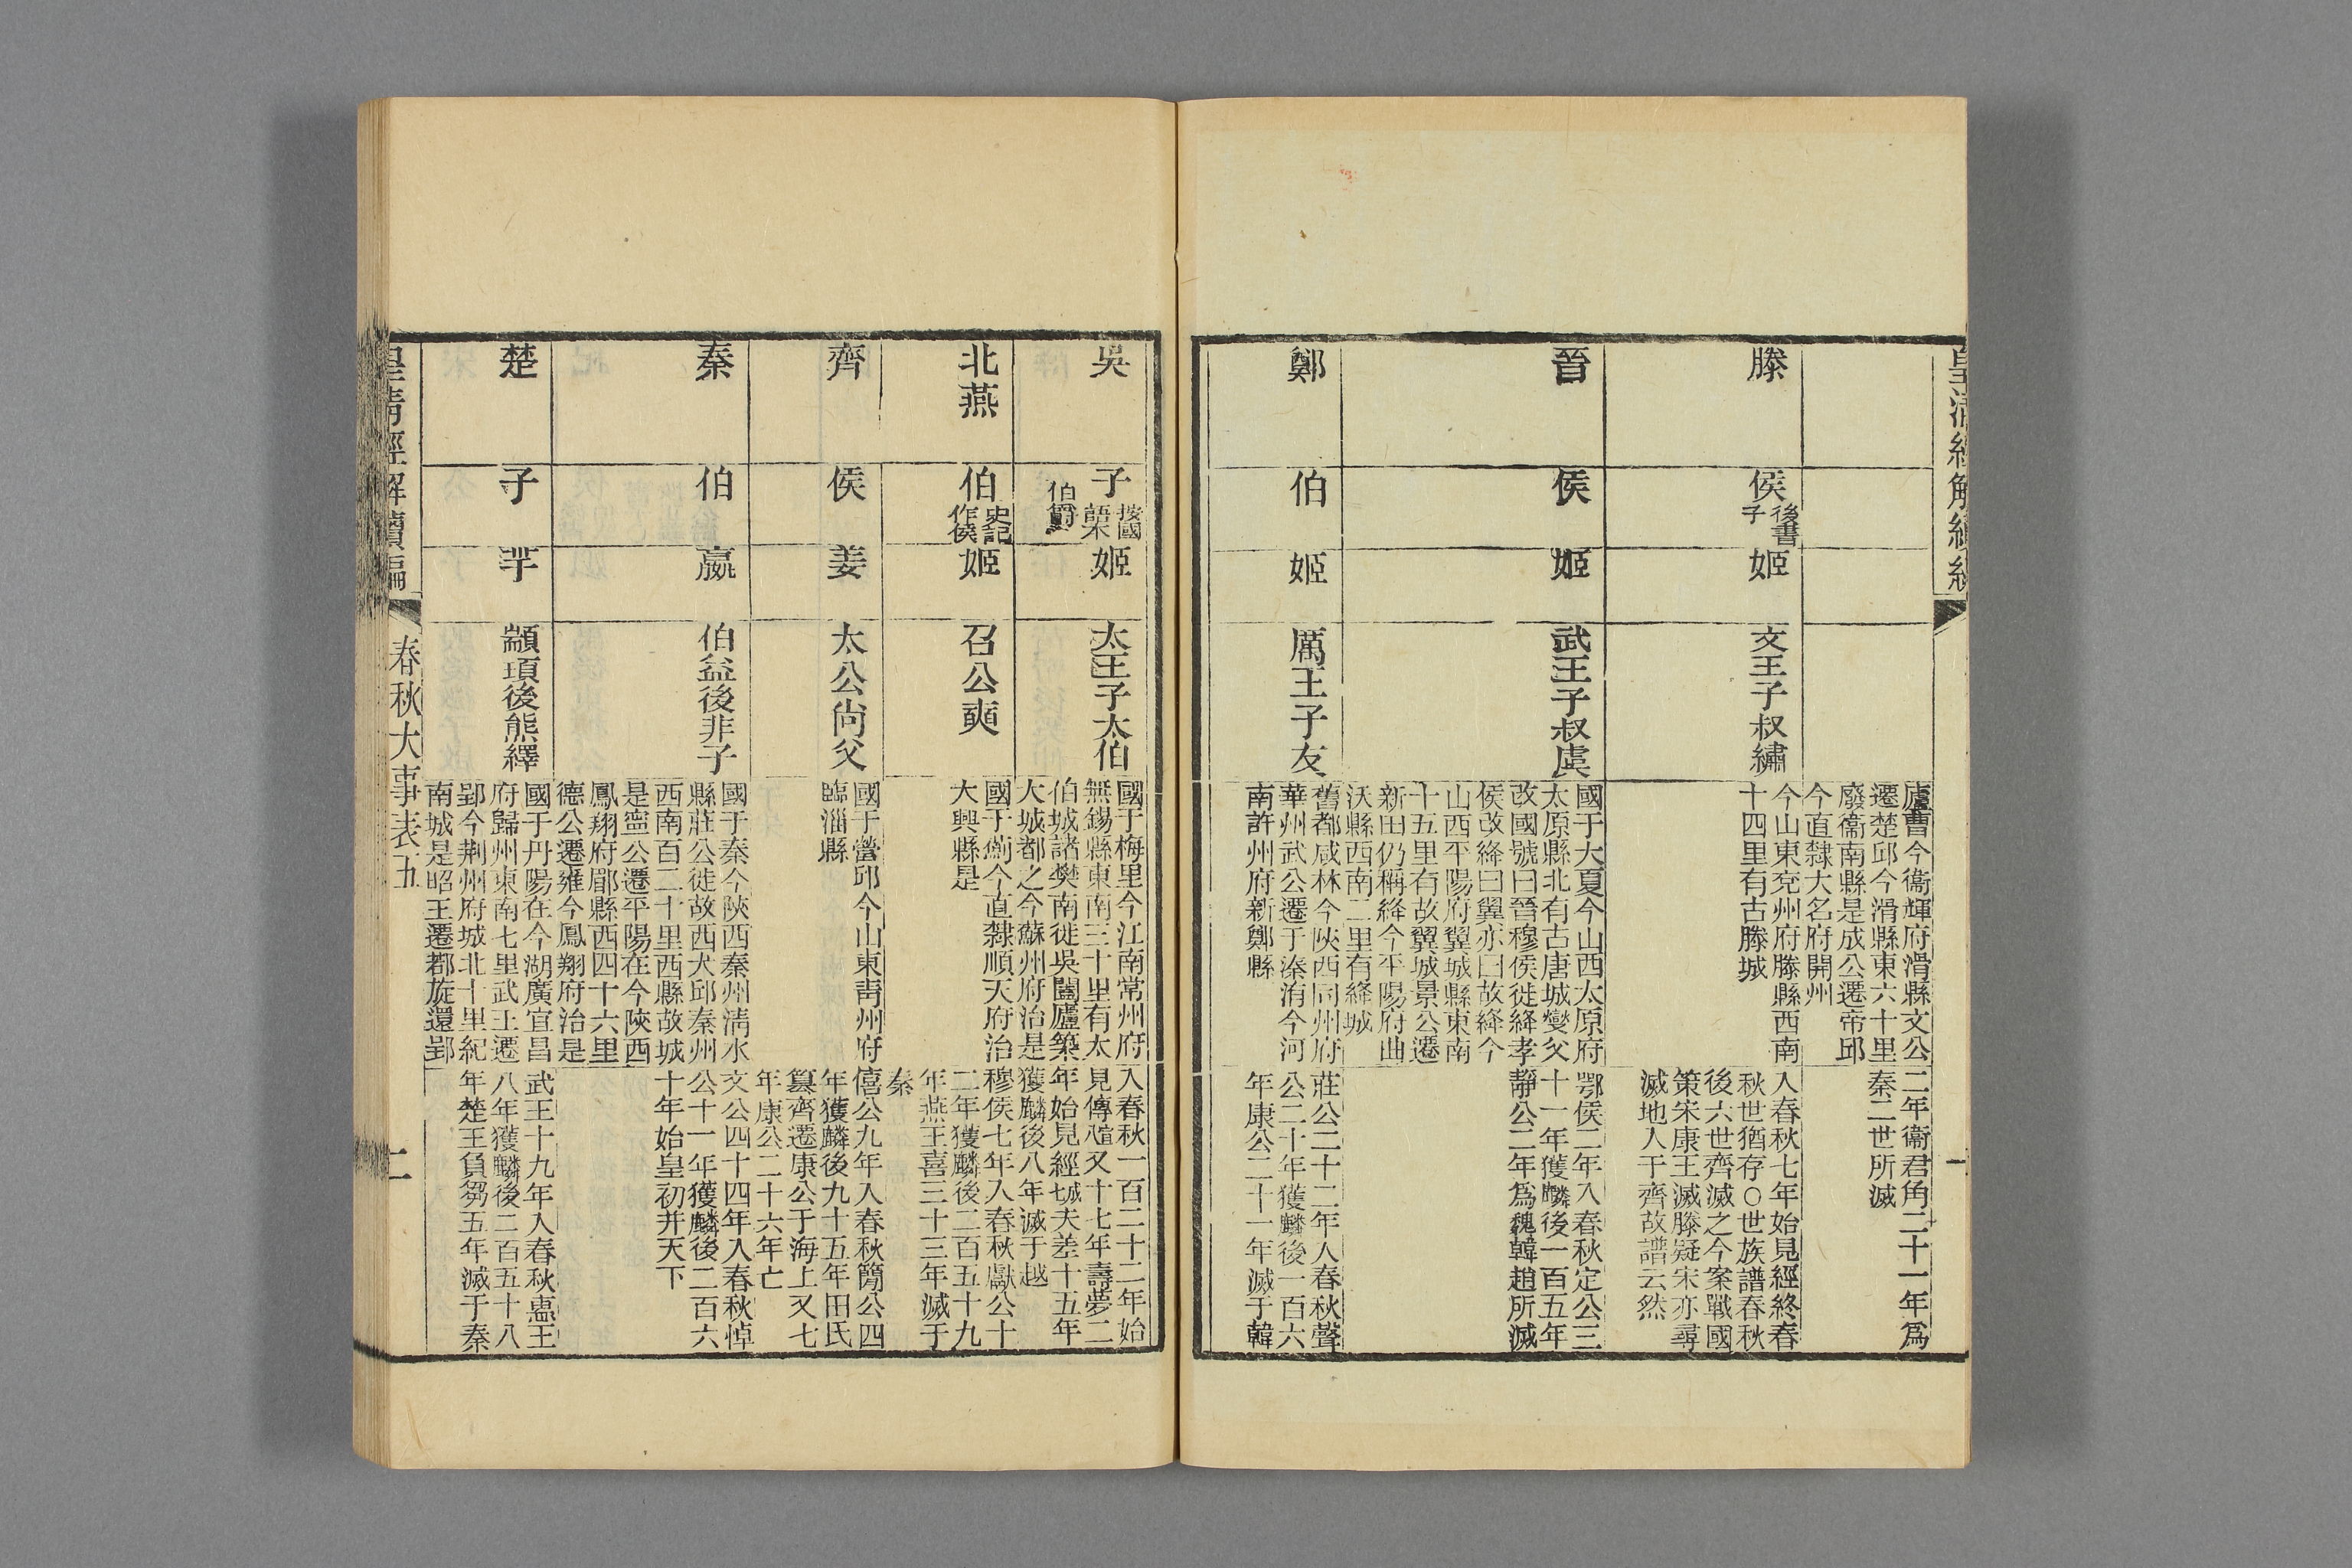 皇清經解續編
廬曹今衞輝府滑縣文公
遷楚邱今滑縣東六十里
廢衞南縣是成公遷帝邱
今直隸大名府開州
二年衞君角二十一年爲
秦二世所滅
滕
侯
後書
子
姬
文王子叔繡
今山東兖州府滕縣西南
十四里有古滕城
入春秋七年始見經終春
秋世猶存〇世族譜春秋
後六世齊滅之今案戰國
策宋康王滅滕疑宋亦尋
滅地入于齊故譜云然
晉
侯
姬
武王子叔虞
國于大夏今山西太原府
太原縣北有古唐城燮父
改國號曰晉穆侯徙絳孝
侯改絳曰翼亦曰故絳今
山西平陽府翼城縣東南
十五里有故翼城景公遷
新田仍稱絳今平陽府曲
沃縣西南二里有絳城
鄂侯二年入春秋定公三
十一年獲麟後一百五年
靜公二年爲魏韓趙所滅
鄭
伯
姬
厲王子友
舊都咸林今陝西同州府
華州武公遷于溱洧今河
南許州府新鄭縣
莊公二十二年入春秋聲
公二十年獲麟後一百六
年康公二十一年滅于韓
吳
子
按國
語本
伯爵
姬
太王子太伯
國于梅里今江南常州府
無錫縣東南三十里有太
伯城諸樊南徙吳闔廬築
大城都之今蘇州府治是
入春秋一百二十二年始
見傳又十七年壽夢二
年始見經夫差十五年
獲麟後八年滅于越
北燕
伯
史記
作侯
姬
召公奭
國于薊今直隸順天府治
大興縣是
穆侯七年入春秋獻公十
二年獲麟後二百五十九
年燕王喜三十三年滅于
秦
齊
侯
姜
太公尚父
國于營邱今山東靑州府
臨淄縣
僖公九年入春秋簡公四
年獲麟後九十五年田氏
簒齊遷康公于海上又七
年康公二十六年亡
秦
伯
嬴
伯益後非子
國于秦今陝西秦州淸水
縣莊公徙故西犬邱秦州
西南百二十里西縣故城
是寧公遷平陽在今陝西
鳳翔府郿縣西四十六里
德公遷雍今鳳翔府治是
文公四十四年入春秋悼
公十一年獲麟後二百六
十年始皇初并天下
楚
子
芈
顓頊後熊繹
國于丹陽在今湖廣宜昌
府歸州東南七里武王遷
郢今荆州府城北十里紀
南城是昭王遷都旋還郢
武王十九年入春秋惠王
八年獲麟後二百五十八
年楚王負芻五年滅于秦
皇清經解續編
春秋大事表五
二